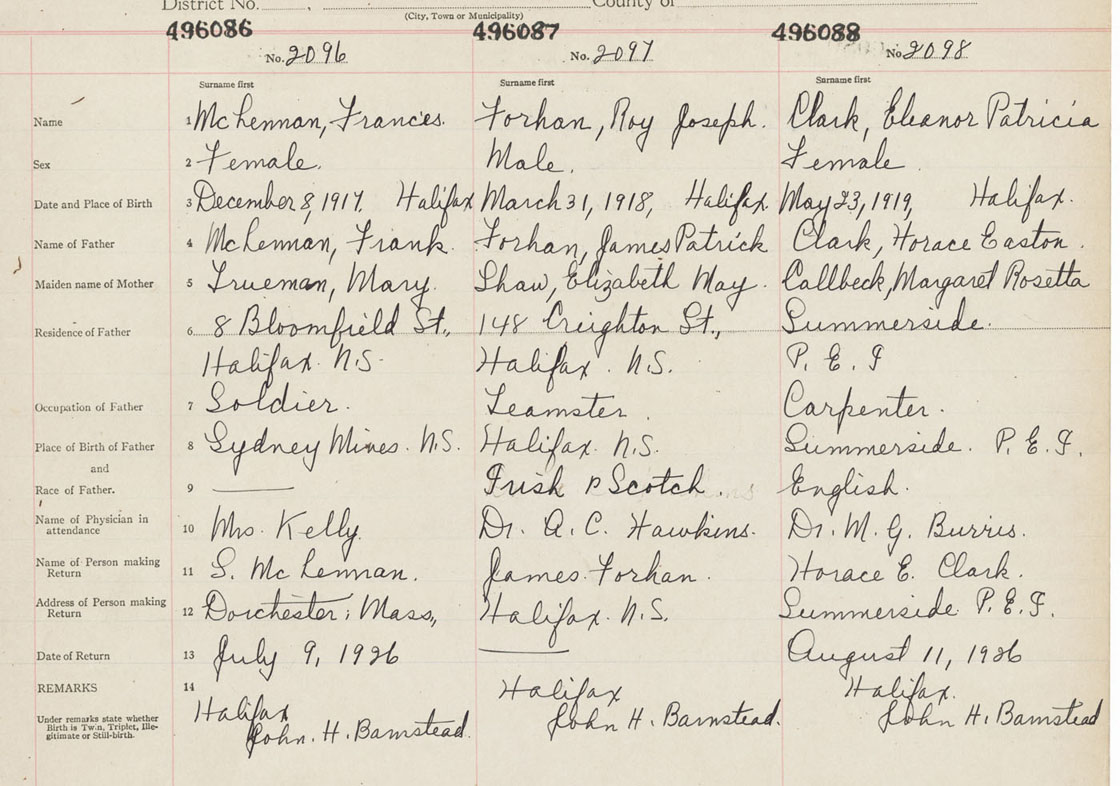 District No. County of
(City, Town or Municipality)
496086 496087 496088
No. 2096 No. 2097 No. 2098
Surname first Surname first Surname first
Name 1 McLennan, Frances. Forhan, Roy Joseph. Clark, Eleanor Patricia
Sex 2 Female. Male. Female
Date and Place of Birth 3 December 8, 1917. Halifax March 31, 1918, Halifax. May 23, 1919, Halifax.
Name of Father 4 McLennan, Frank. Forhan, James Patrick Clark, Horace Easton.
Maiden name of Mother 5 Trueman, Mary. Shaw, Elizabeth May. Callbeck, Margaret Rosetta
Residence of Father 6 8 Bloomfield St., 148 Creighton St., Summerside.
Halifax. N.S. Halifax. N.S. P. E. I
Occupation of Father 7 Soldier. Teamster. Carpenter.
Place of Birth of Father 8 Sydney Mines. N.S. Halifax. N.S. Summerside. P. E. I.
and
Race of Father. 9 Irish & Scotch. English.
Name of Physician in attendance 10 Mrs. Kelly. Dr. A. C. Hawkins. Dr. M. G. Burris.
Name of Person making Return 11 S. McLennan. James Forhan. Horace E. Clark.
Address of Person making Return 12 Dorchester, Mass., Halifax. N.S. Summerside P.E.I.
Date of Return 13 July 9, 1926 August 11, 1926
REMARKS 14 Halifax Halifax Halifax.
Under remarks state whether Birth is Twin, Triplet, Ille-gitimate or Still-birth. John. H. Barnstead. John H. Barnstead. John H. Barnstead